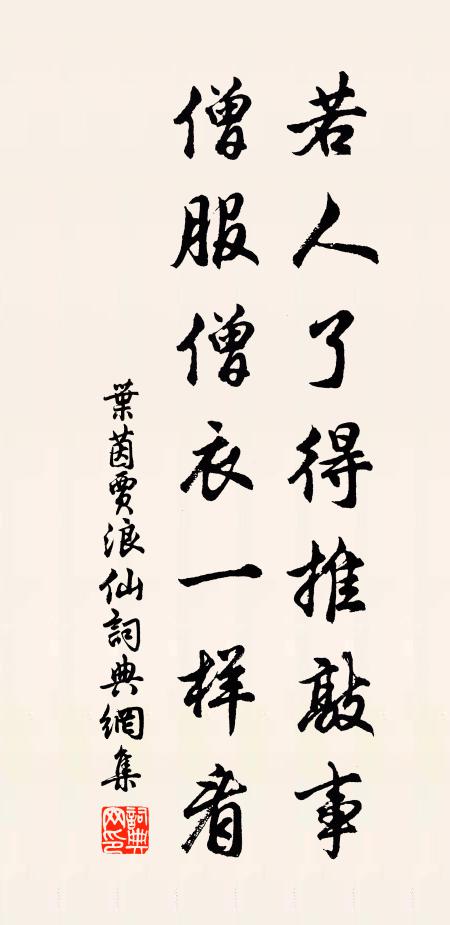 若人了得推敲事
僧服僧衣一样看
葉茵賈浪仙詞典網集
詞典網印